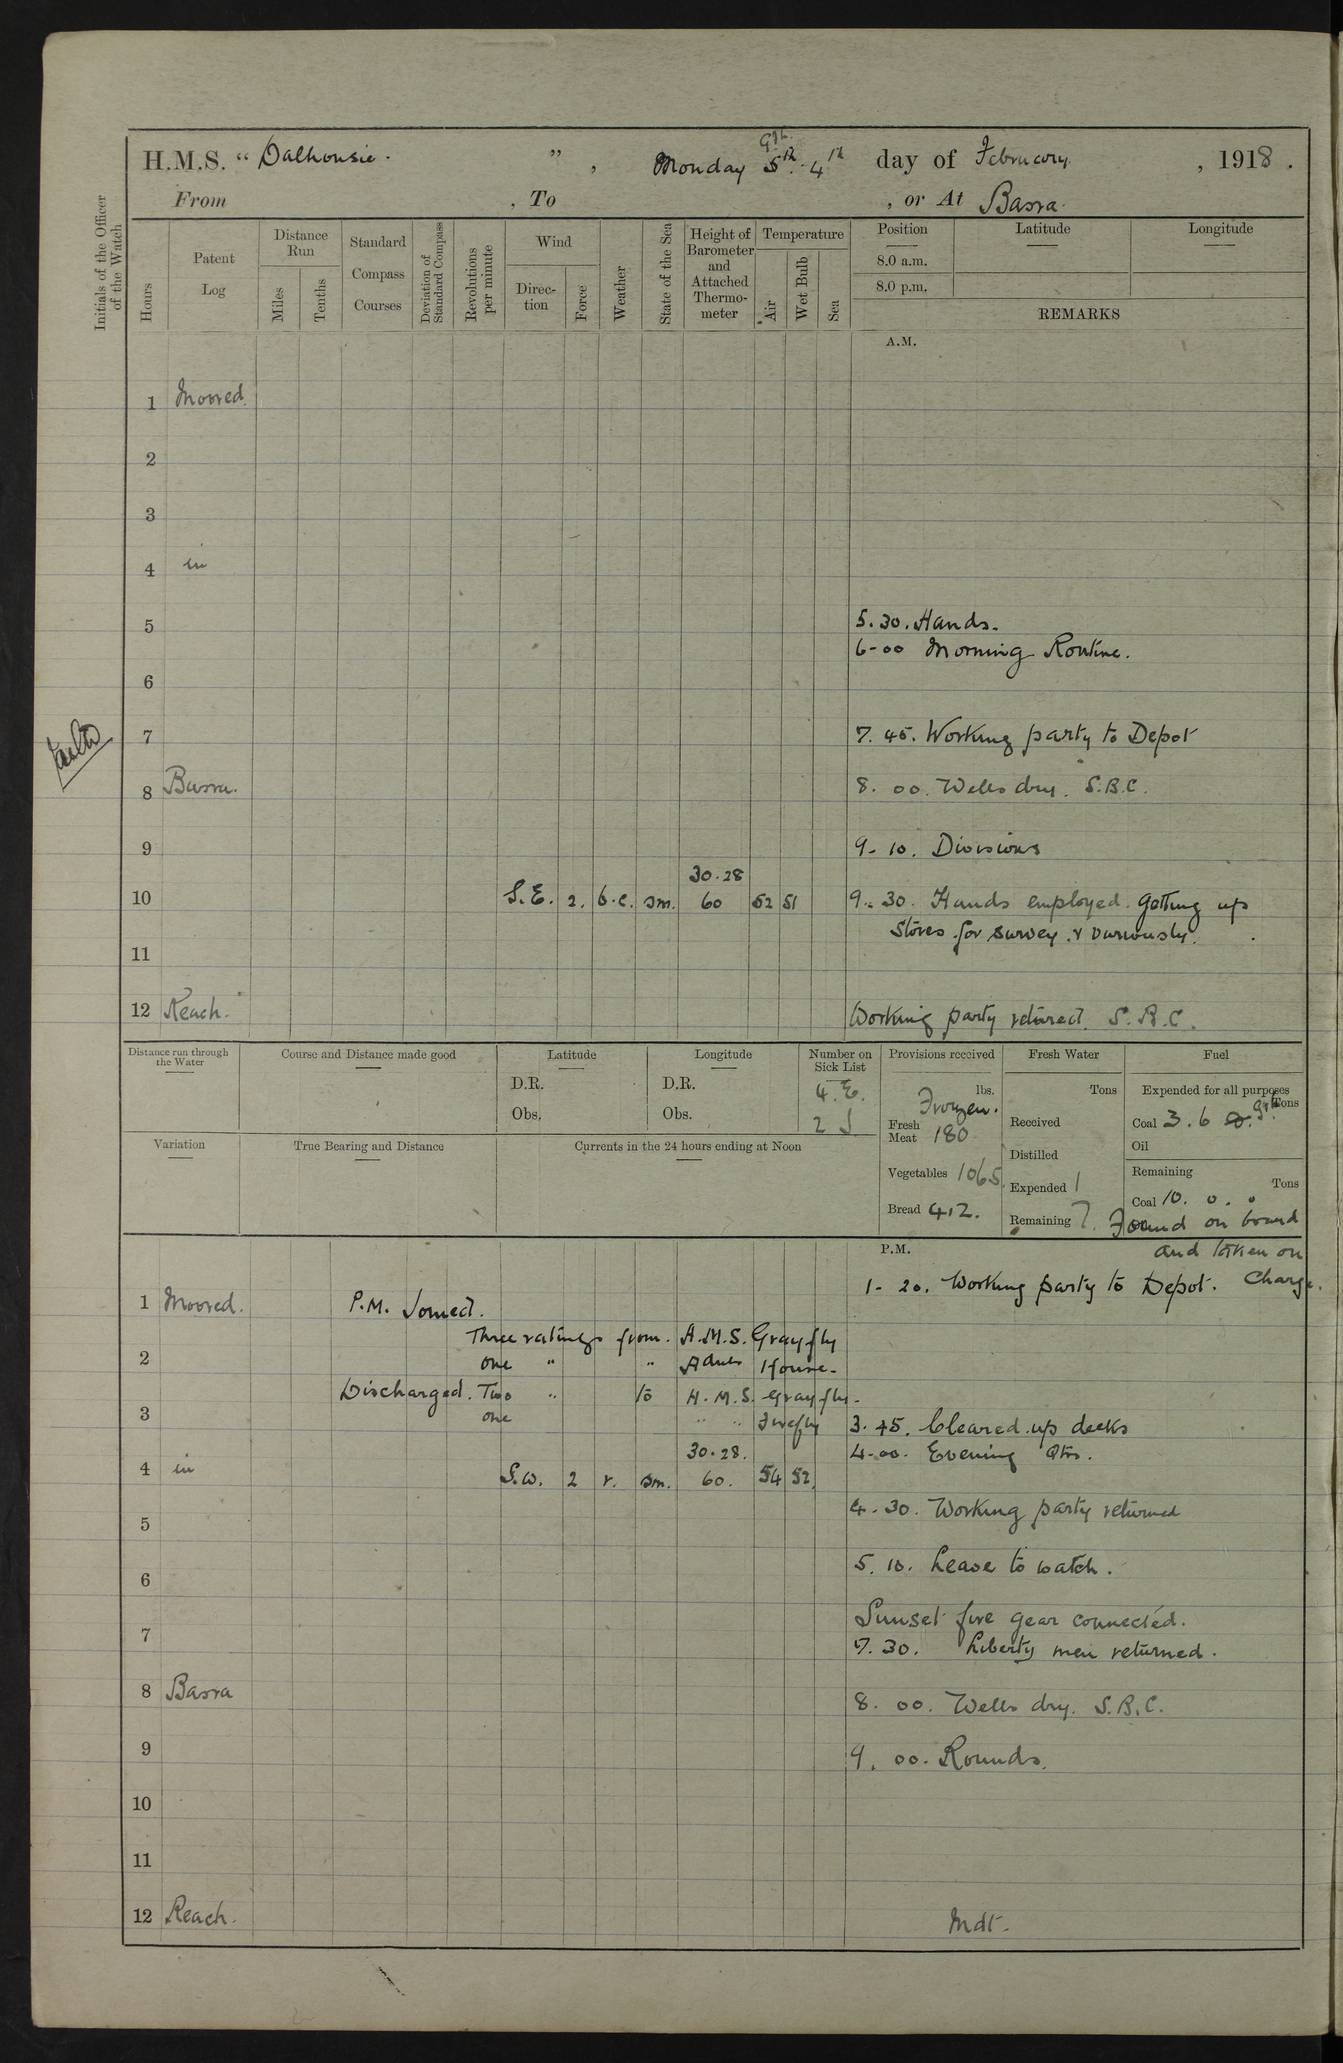 H.M.S. “ Dalhousie. ” , Monday 5th. 4th day of February. , 1918.
From , To , or At Basra.
Initials of the Officer of the Watch
Hours
Patent Log
Distance Run
Miles
Tenths
Standard Compass Courses
Deviation of Standard Compass
Revolutions per minute
Wind
Direc- tion
Force
Weather
State of the Sea
Height of Barometer and Attached Thermo- meter
Temperature
Air
Wet Bulb
Sea
Position
Latitude
Longitude
8.0 a.m.
8.0 p.m.
REMARKS
A.M.
1 Moored.
2
3
4 in
5 5.30. Hands.
6-00 Morning Routine.
6
7 7.45. Working party to Depot
8 Basra. 8.00. Wells dry. S.B.C.
9 9-10. Divisions
30.28
10 S.E. 2. b.c. sm. 60 52 51 9.30. Hands employed. getting up
stores for survey. & variously.
11
12 Reach. Working party returned. S.B.C.
Distance run through the Water
Course and Distance made good
Latitude
D.R.
Obs.
Longitude
D.R.
Obs.
Number on Sick List
4. E.
2 S
Provisions received
lbs.
Frozen.
Fresh Meat 180
Vegetables 106
Bread 412.
Fresh Water
Tons
Received
Distilled
Expended 1
Remaining 7.
Fuel
Expended for all purposes
Tons
Coal 3.6
Oil
Remaining
Tons
Coal 10. 0. "
Found on board
and taken on
Charge.
Variation
True Bearing and Distance
Currents in the 24 hours ending at Noon
P.M.
1- 20. Working party to Depot.
1 Moored. P.M. Joined.
Three ratings from. H.M.S. Grayfly
2 one " " House.
Discharged. Two " to H.M.S. Grayfly.
3 one " " Firefly 3.45. Cleared up decks
30.28. 4-00. Evening Qtrs.
4 in S.W. 2 r. sm. 60. 54 52.
4-30. Working party returned
5
5.10. Leave to watch.
6
Sunset fire gear connected.
7 7.30. Liberty men returned.
8 Basra 8.00. Wells dry. S.B.C.
9 9.00. Rounds.
10
11
12 Reach. Mdt.